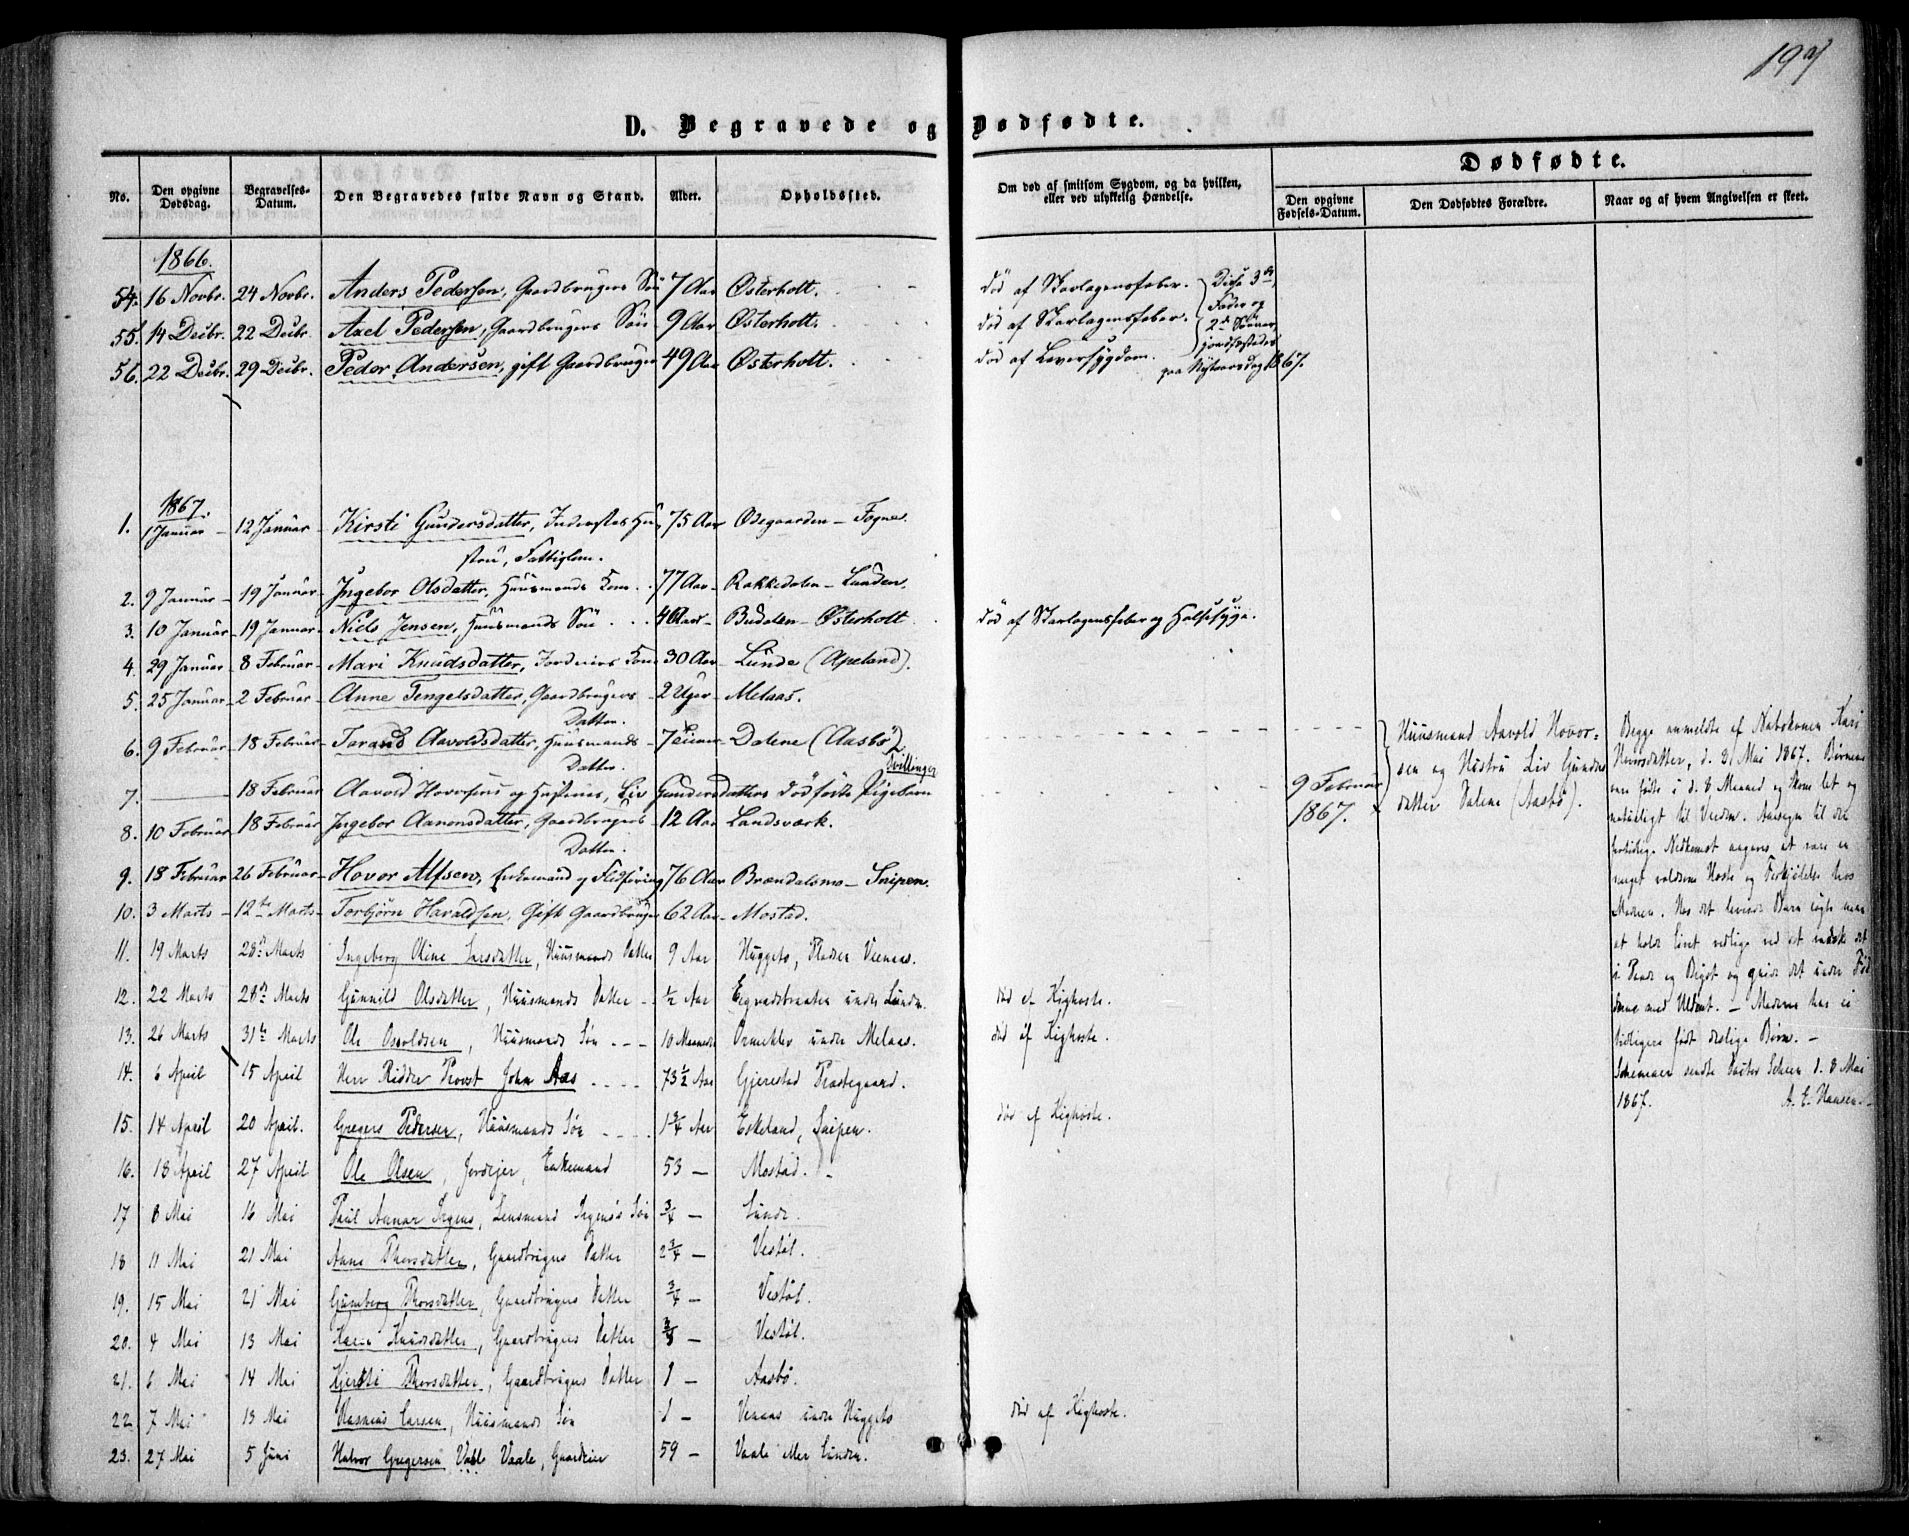 D. Begravede og Dødfødte.
No. Den opgivne Dødsdag. Begravelses-Datum. Den Begravedes fulde Navn og Stand. Alder. Opholdssted. Om død af smitsom Sygdom, og da hvilken, eller ved ulykkelig Hændelse.
Dødfødte.
Den opgivne Fødsels-Datum. Den Dødfødtes Forældre. Naar og af hvem Angivelsen er skeet.
1866.
54. 16 Novbr. 24 Novbr. Anders Pedersen, Gaardbrugers Sön 7 Aar Østerholt. död af Skarlagensfeber.
55. 14 Decbr. 22 Decbr. Axel Pedersen, Gaardbrugers Sön 9 Aar Østerholt. död af Skarlagensfeber.
56. 22 Decbr. 29 Decbr. Peder Andersen, gift Gaardbruger 49 Aar Østerholt. död af Leversygdom.
Disse 3de,
Fader og
2de Sönner,
jordfæstedes
paa Nytaarsdag 1867.
1867.
1. 1 Januar 12 Januar Kirsti Gundersdatter, Inderstes Hustru, Fattiglem. 75 Aar Ødegaarden - Fogne.
2. 9 Januar 19 Januar Ingebor Olsdatter, Huusmands Kone 77 Aar Rakkedalen - Lunden.
3. 10 Januar 19 Januar Niels Jensen, Huusmands Sön 4 Aar Budalen - Østerholt död af Skarlagensfeber og Halssyge.
4. 29 Januar 8 Februar Mari Knudsdatter, Kone 30 Aar Lunde (Apeland).
5. 25 Januar 2 Februar Anne Tengelsdatter, Gaardbrugers Datter. 2 Uger Melaas.
6. 9 Februar 18 Februar Torand Aavoldsdatter, Huusmands Datter. 7 Timer Dalene (Aasbö)
7. 18 Februar Aavold Hovorsens og Hustrues, Liv Gundersdatters dödfödte Pigebarn Tvillinger
9 Februar 1867.
Huusmand Aavold Hovorsen og Hustru Liv Gundersdatter Dalene (Aasbö).
8. 10 Februar 18 Februar Ingebor Aanonsdatter, Gaardbrugers Datter. 12 Aar Landsværk.
9. 18 Februar 26 Februar Hovor Alfsen, Enkemand og Flidföring 76 Aar Brændalsmo - Snipen.
10. 3 Marts 12te Marts Torbjörn Haraldsen, Gift Gaardbruger 62 Aar Mostad.
11. 19 Marts 28de Marts Ingeborg Oline Larsdatter, Huusmands Datter 9 Aar Hugget, Pladsen Veenaas.
12. 22 Marts 28de Marts Gunnild Olsdatter, Huusmands Datter ½ Aar Egvadsbraaten under Lunden. död af Kighoste.
13. 26 Marts 31te Marts Ole Osvoldsen, Huusmands Sön 10 Maaneder Ormeklev under Melaas. död af Kighoste.
14. 6 April 15 April Herr Ridder Provst John Aas 73½ Aar Gjerestad Præstegaard.
15. 14 April 20 April. Gregers Pedersen, Huusmands Sön 1¾ Aar Eskeland, Snipen. död af Kighoste.
16. 18 April 27 April Ole Olsen, Jordejer, Enkemand 53 Mostad.
17 8 Mai 16 Mai Paul Annar Irgens, Lensmand Irgens's Sön ¾ Lunde.
18 11 Mai 21 Mai Anne Thorsdatter, Gaardbrugers Datter 2¾ Vestöl.
19. 15 Mai 21 Mai Gunnborg Thorsdatter, Gaardbrugers Datter ¾ Vestöl.
20. 4 Mai 13 Mai Karen Knudsdatter, Gaardbrugers Datter Vestöl.
21. 6 Mai 14 Mai Kjersti Thorsdatter, Gaardbrugers Datter 1 Aasbö.
22 7 Mai 13 Mai Rasmus Larsen, Huusmands Sön 1 Venaas under Hugget död af Kighoste.
23. 27 Mai 5 Juni Halvor Gregersen Vaale, Gaardeier 59 Vaale eller Lunden.
Begge anmeldte af Nabokonen Kari
Hovorsdatter, d. 21 Mai 1867. Börnene
vare födte i d. 8 Maaned og kom let og
naturligt til Verden. Aarsagen til det
for tidlige Nedkomst angives at være en
meget voldsom Hoste og Forkjölelse hos
Moderen. Hos det levende Barn sögte man
at holde Livet vedlige ved at indsvöbe det
og gnide det under
Moderen har ei
tidligere födt deslige Börn. -
Schemaer sendte Pastor Scheen d. 8 Mai
1867. A. E. Hansen.